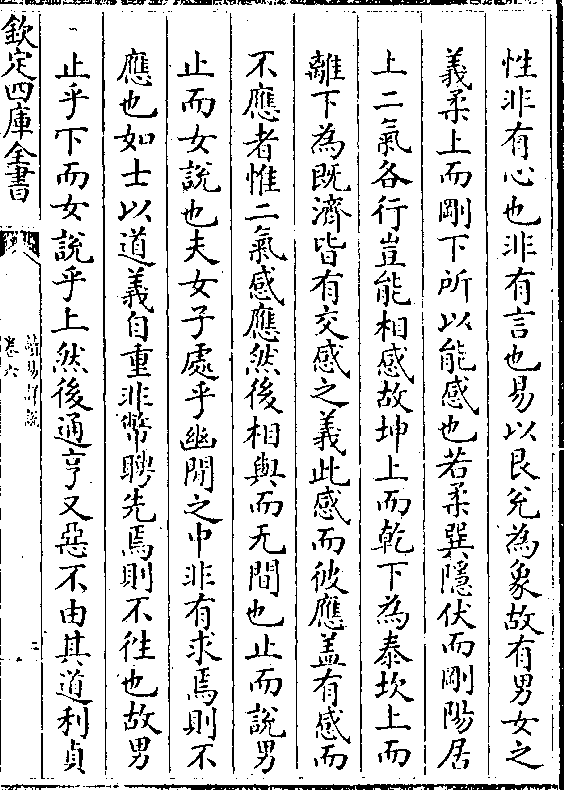 性非有心也非有言也易以艮兌為象故有男女之
義柔上而剛下所以能感也若柔巽隱伏而剛陽居
上二氣各行豈能相感故坤上而乾下為泰坎上而
離下為既濟皆有交感之義此感而彼應盖有感而
不應者惟二氣感應然後相與而无間也止而說男
止而女說也夫女子處乎幽閒之中非有求焉則不
應也如士以道義自重非幣聘先焉則不徃也故男
止乎下而女說乎上然後通亨又惡不由其道利貞
欽定四庫全書
卷六